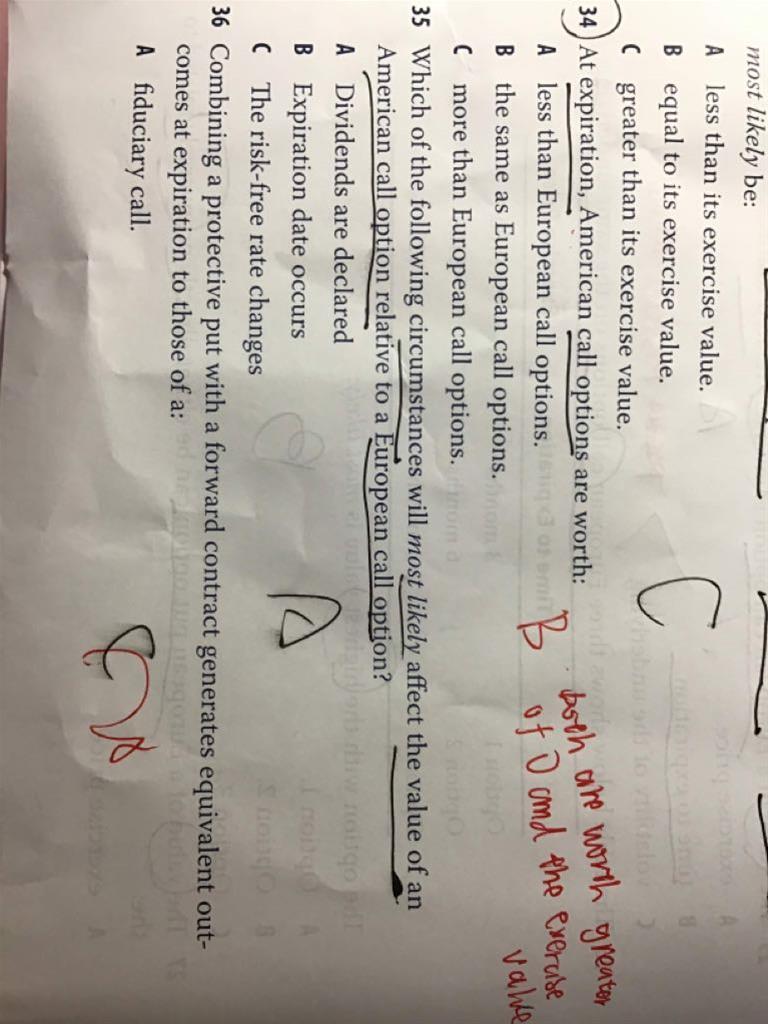 most likely be:
A less than its exercise value.
B equal to its exercise value.
C greater than its exercise value.
C
34 At expiration, American call options are worth:
A less than European call options.
B the same as European call options.
C more than European call options.
B both are worth greater
of 0 and the exercise
value
35 Which of the following circumstances will most likely affect the value of an
American call option relative to a European call option?
A Dividends are declared
B Expiration date occurs
C The risk-free rate changes
A
36 Combining a protective put with a forward contract generates equivalent out-
comes at expiration to those of a:
A fiduciary call.